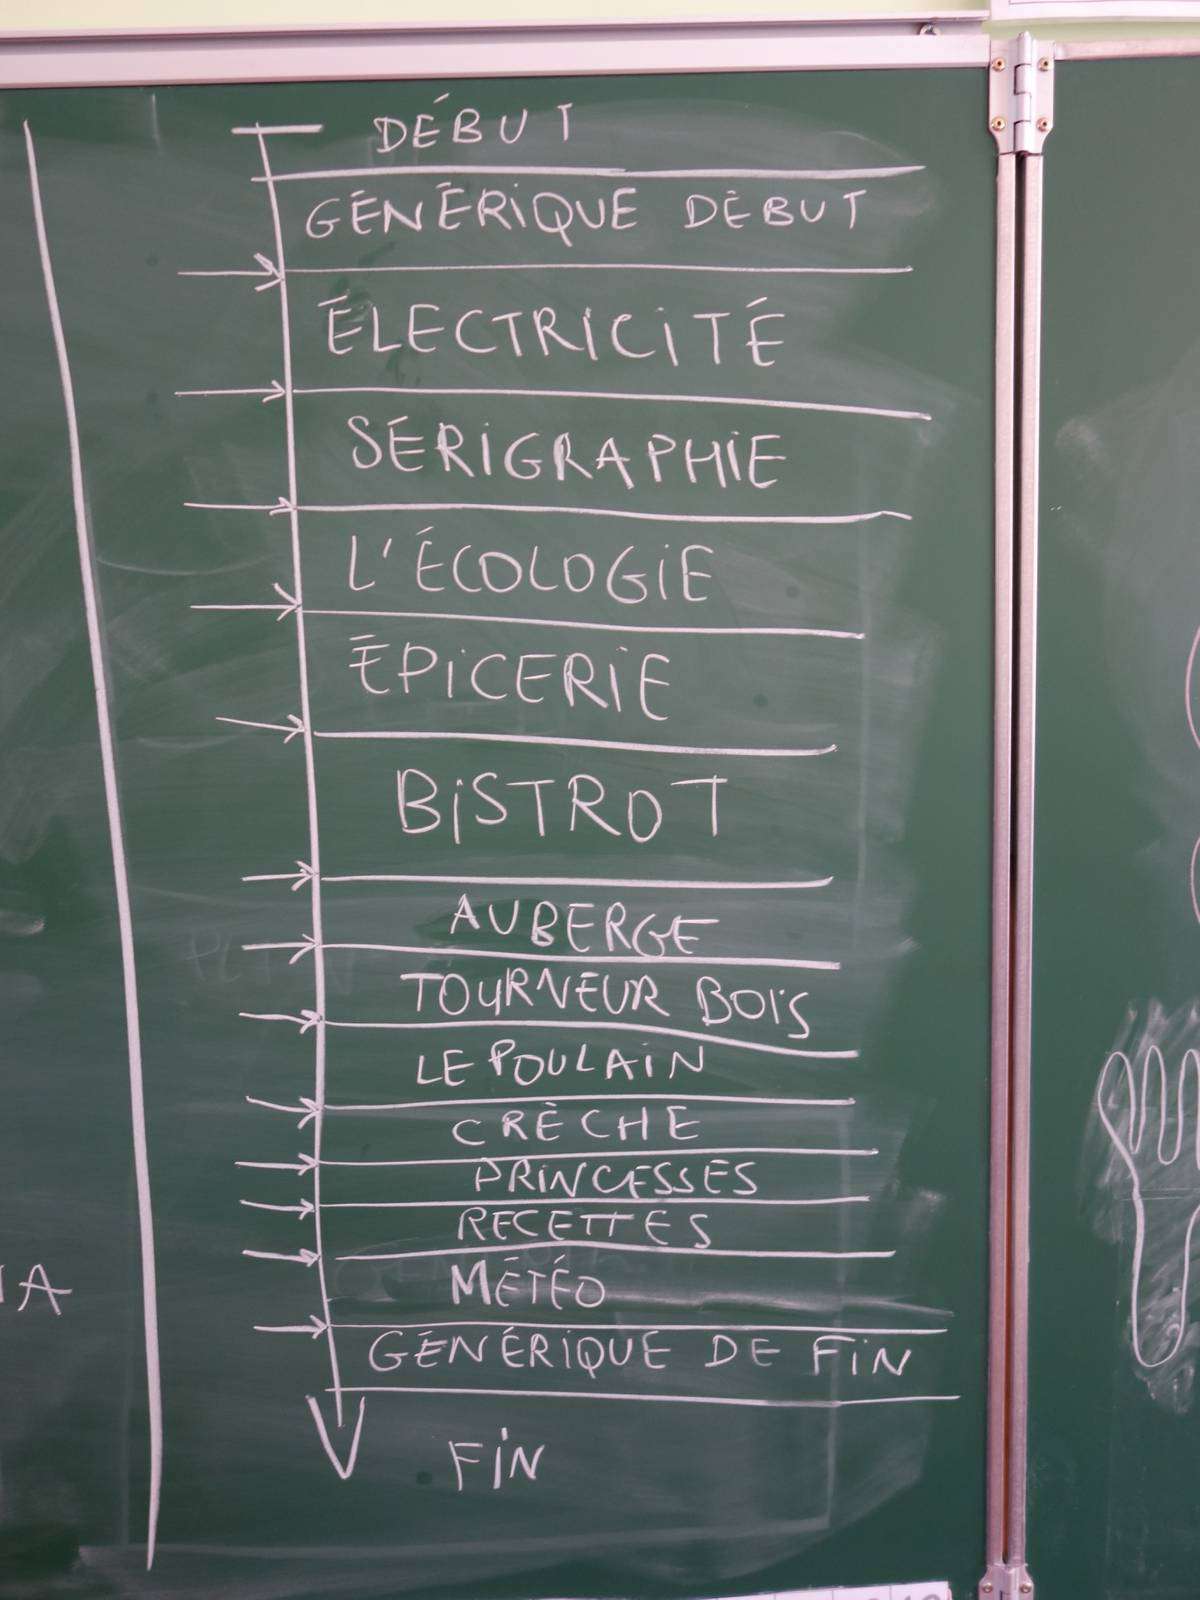 DÉBUT
GÉNÉRIQUE DÉBUT
ÉLECTRICITÉ
SÉRIGRAPHIE
L'ÉCOLOGIE
ÉPICERIE
BISTROT
AUBERGE
TOURNEUR BOIS
LE POULAIN
CRÈCHE
PRINCESSES
RECETTES
MÉTÉO
GÉNÉRIQUE DE FIN
FIN